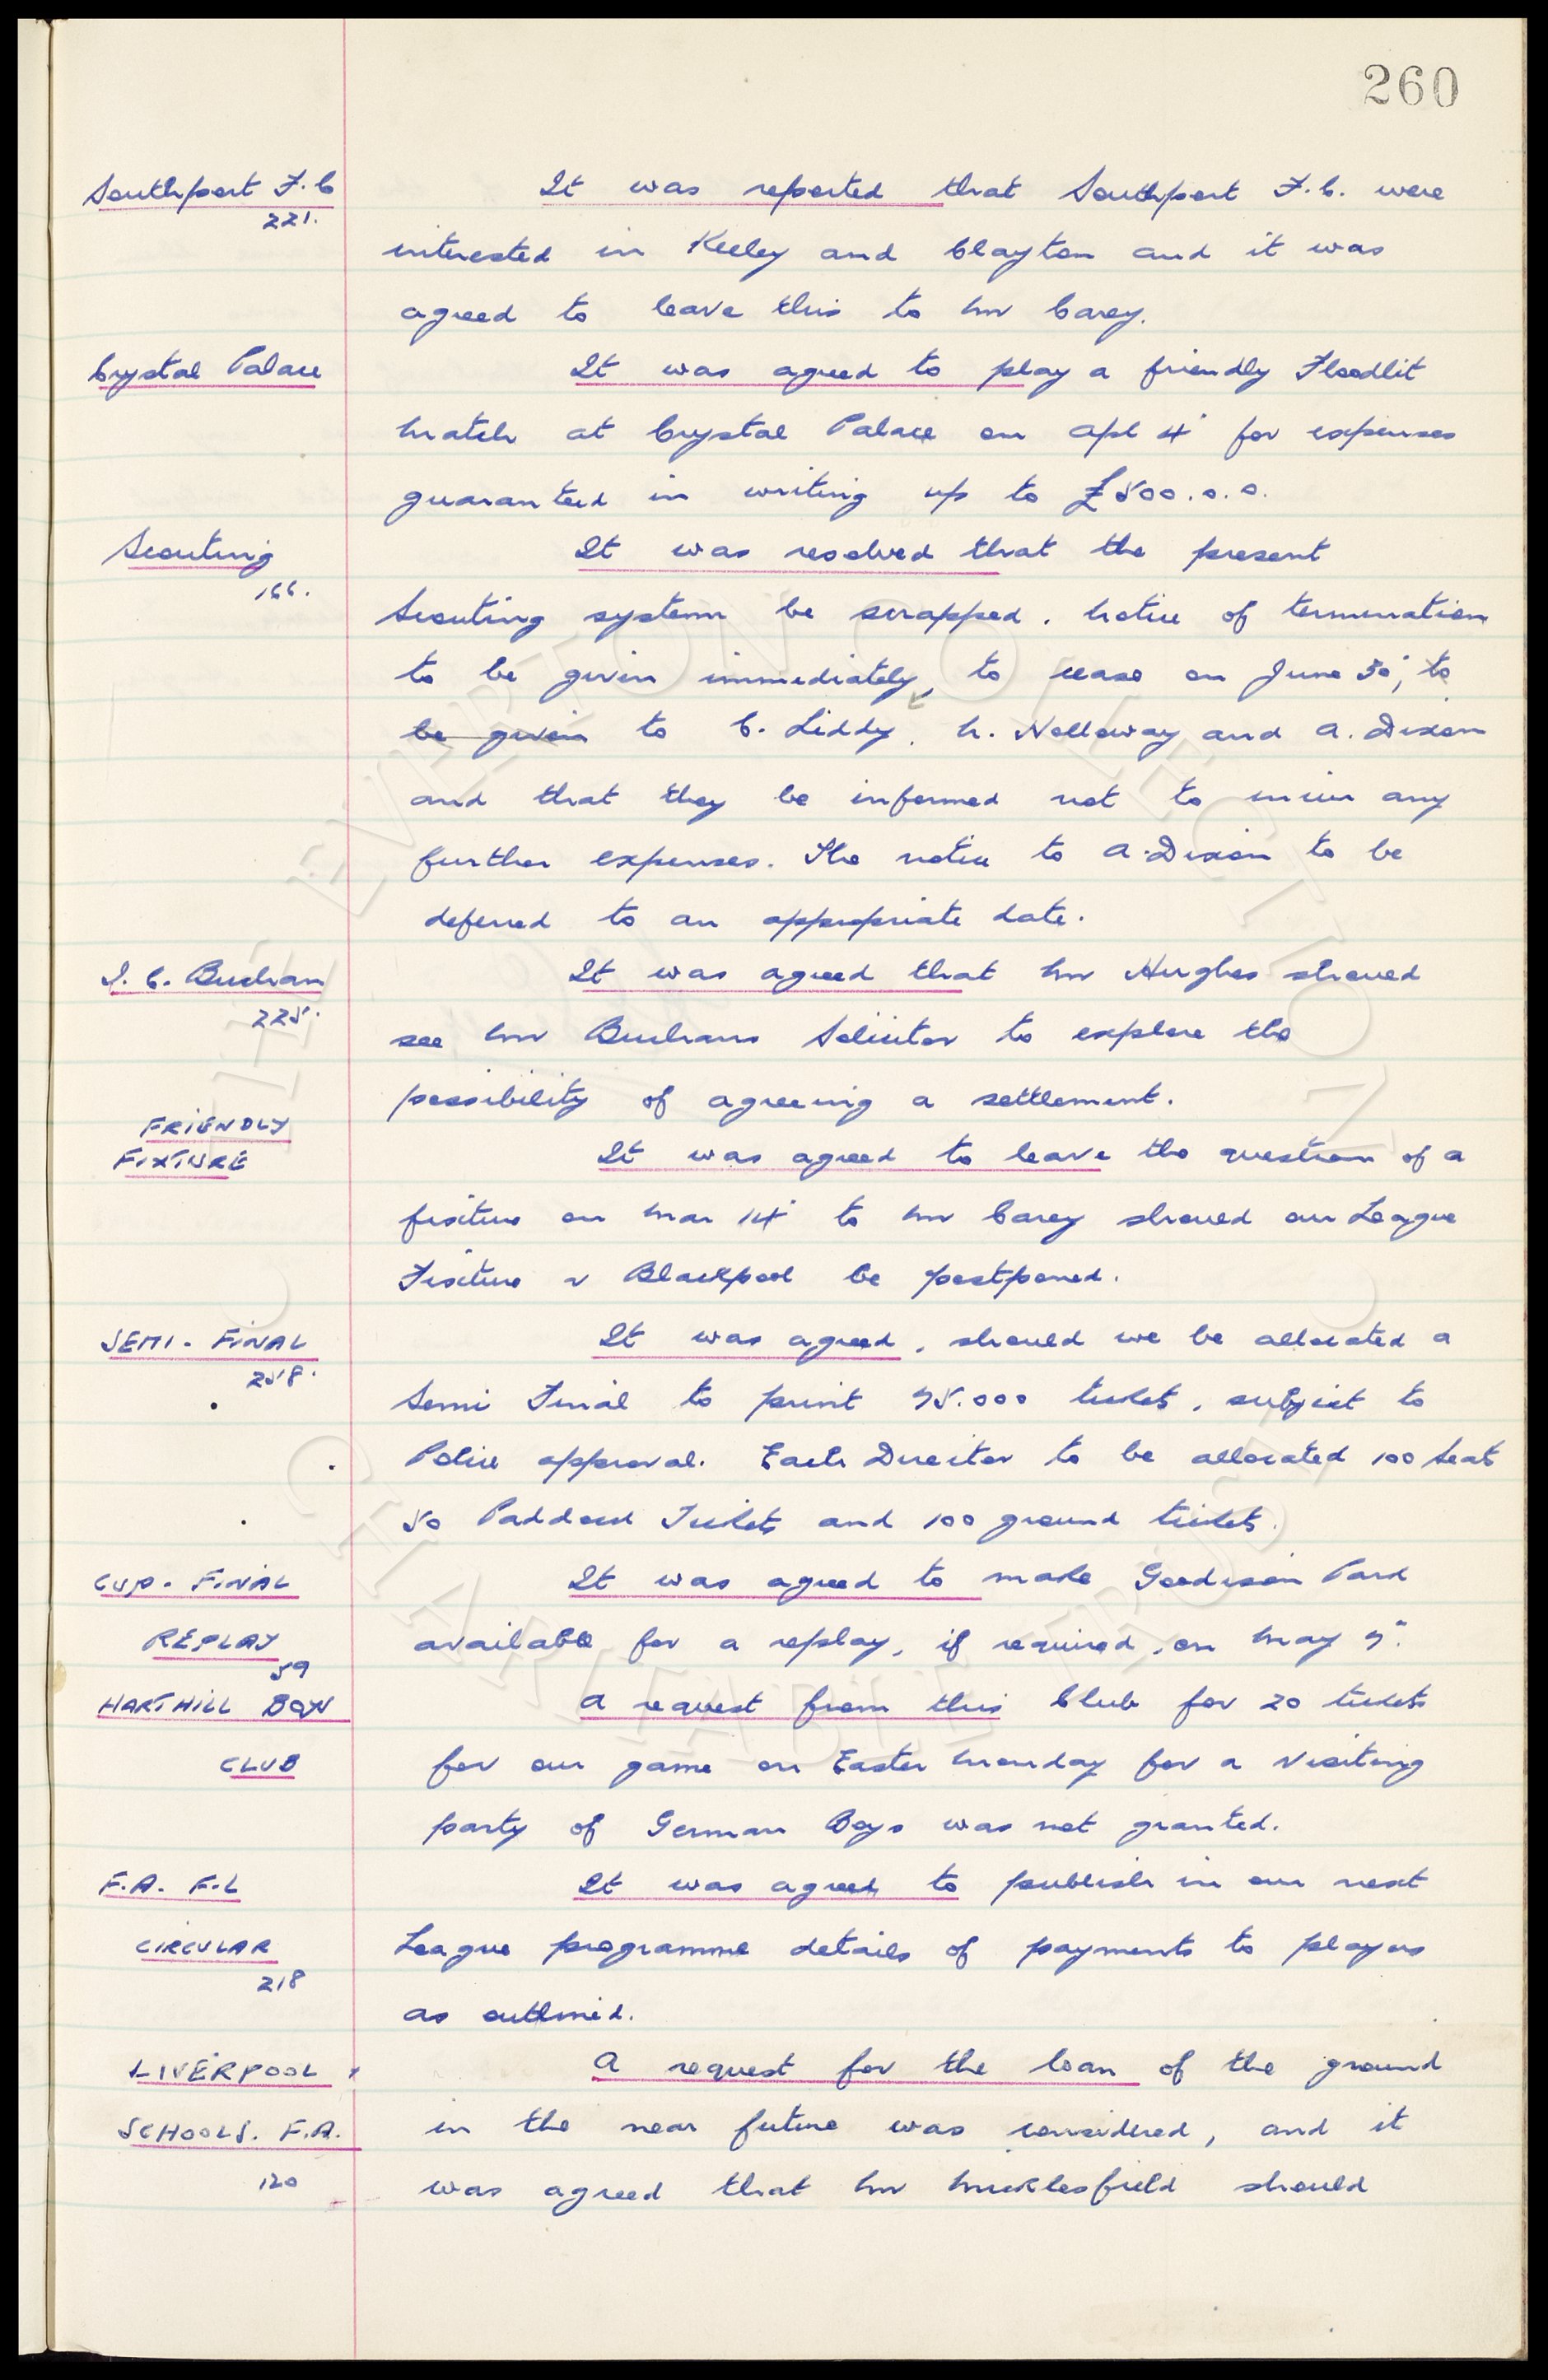 260
Southport F.C
221.
It was reported that Southport F.C. were
interested in Keeley and Clayton and it was
agreed to leave this to Mr Carey.
Crystal Palace
It was agreed to play a friendly Floodlit
Match at Crystal Palace on Apl 4" for expenses
guaranteed in writing up to £500.0.0.
Scouting
166.
It was resolved that the present
Scouting system be scrapped. Notice of termination
to be given immediately, to cease on June 30", to
be given to C. Liddy. H. Holloway and A. Dixon
and that they be informed not to incur any
further expenses. The notice to A. Dixon to be
deferred to an appropriate date.
I. C. Buchan
225.
It was agreed that Mr Hughes should
see Mr Buchans Solicitor to explore the
possibility of agreeing a settlement.
FRIENDLY
FIXTURE
It was agreed to leave the question of a
fixture on Mar 14" to Mr Carey should our League
Fixture v Blackpool be postponed.
SEMI-FINAL
258.
It was agreed, should we be allocated a
Semi Final to print 75.000 tickets, subject to
Police approval. Each Director to be allocated 100 Seat
50 Paddock Tickets and 100 ground tickets.
CUP-FINAL
It was agreed to make Goodison Park
REPLAY
59
available for a replay, if required, on May 7".
HARTHILL BOY
A request from this Club for 20 tickets
CLUB
for our game on Easter Monday for a Visiting
party of German Boys was not granted.
F.A. F.L
It was agreed to publish in our next
CIRCULAR
218
League programme details of payments to players
as outlined.
LIVERPOOL
A request for the loan of the ground
SCHOOLS. F.A.
in the near future was considered, and it
120
was agreed that Mr Micklesfield should
EVERTON COLLECTION
CHARITABLE TRUST